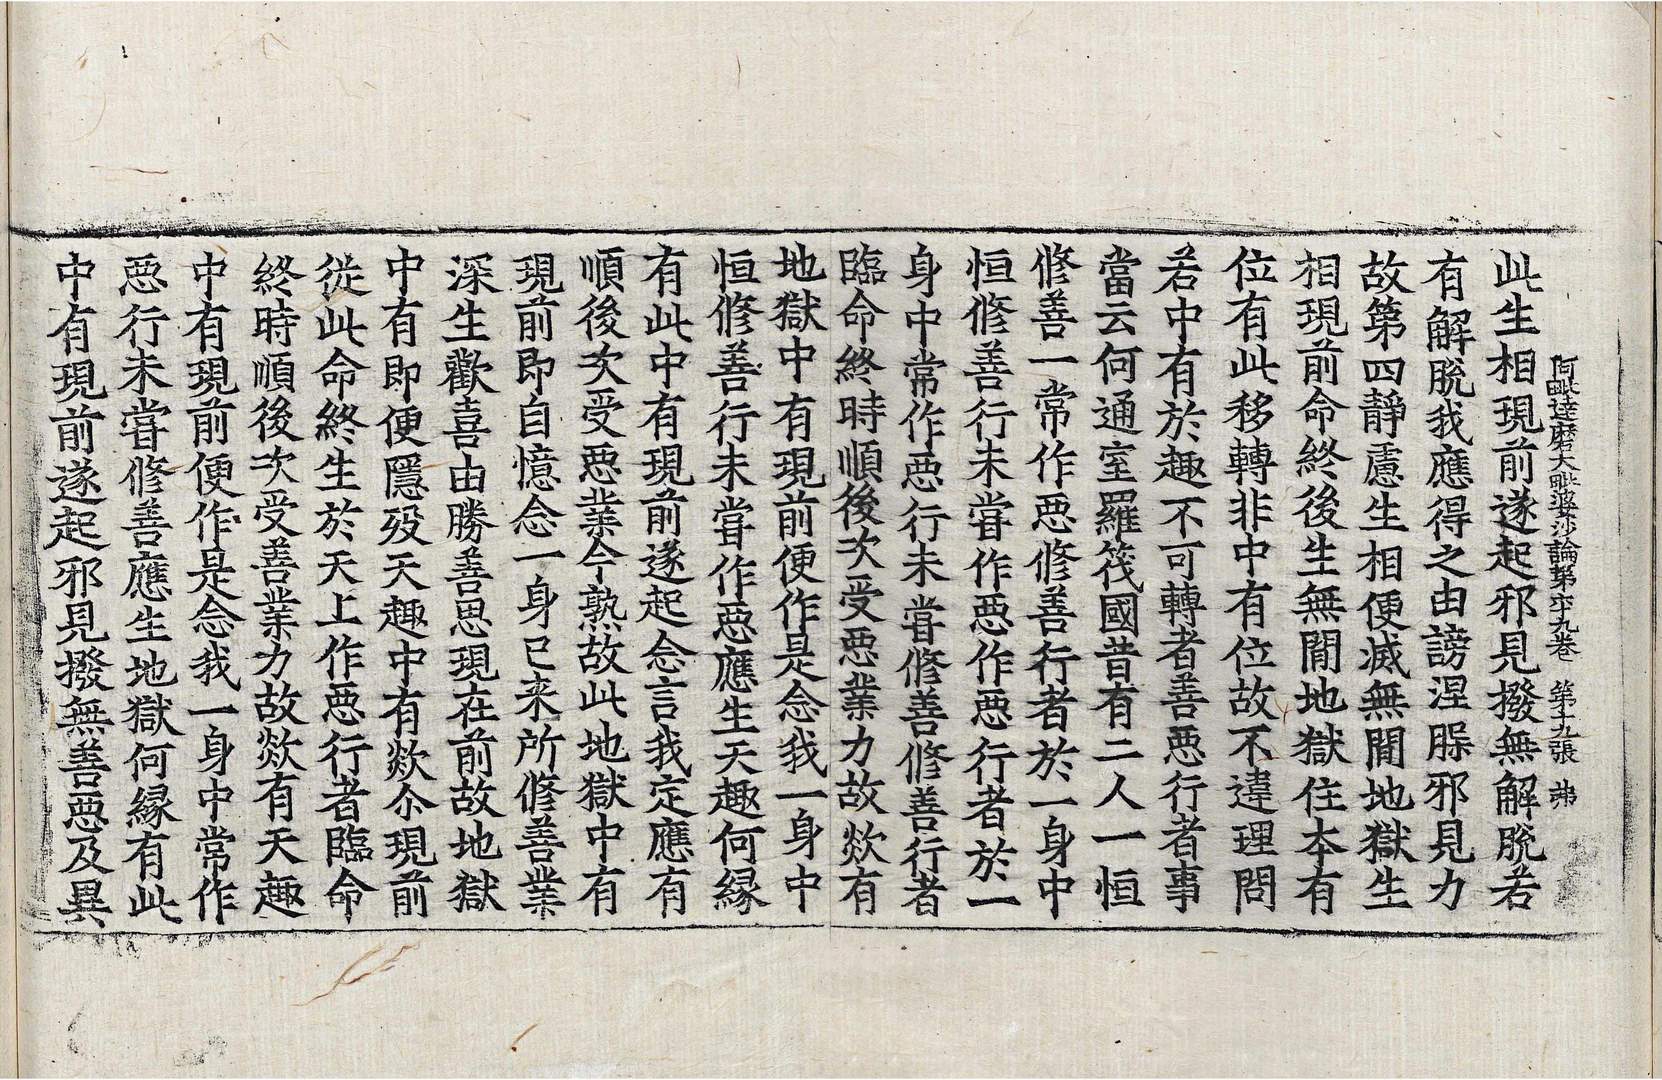 阿毗達磨大毗婆沙論第六十九卷 第十九張 弗
此生相現前遂起邪見撥無解脫若
有解脫我應得之由謗涅槃邪見力
故第四靜慮生相便滅無間地獄生
相現前命終後生無間地獄住本有
位有此移轉非中有位故不違理問
若中有於趣不可轉者善惡行者事
當云何通室羅筏國昔有二人一恒
修善一常作惡修善行者於一身中
恒修善行未甞作惡作惡行者於一
身中常作惡行未甞修善修善行者
臨命終時順後次受惡業力故欻有
地獄中有現前便作是念我一身中
恒修善行未甞作惡應生天趣何緣
有此中有現前遂起念言我定應有
順後次受惡業今熟故此地獄中有
現前即自憶念一身已來所修善業
深生歡喜由勝善思現在前故地獄
中有即便隱歿天趣中有欻尒現前
從此命終生於天上作惡行者臨命
終時順後次受善業力故欻有天趣
中有現前便作是念我一身中常作
惡行未甞修善應生地獄何緣有此
中有現前遂起邪見撥無善惡及異